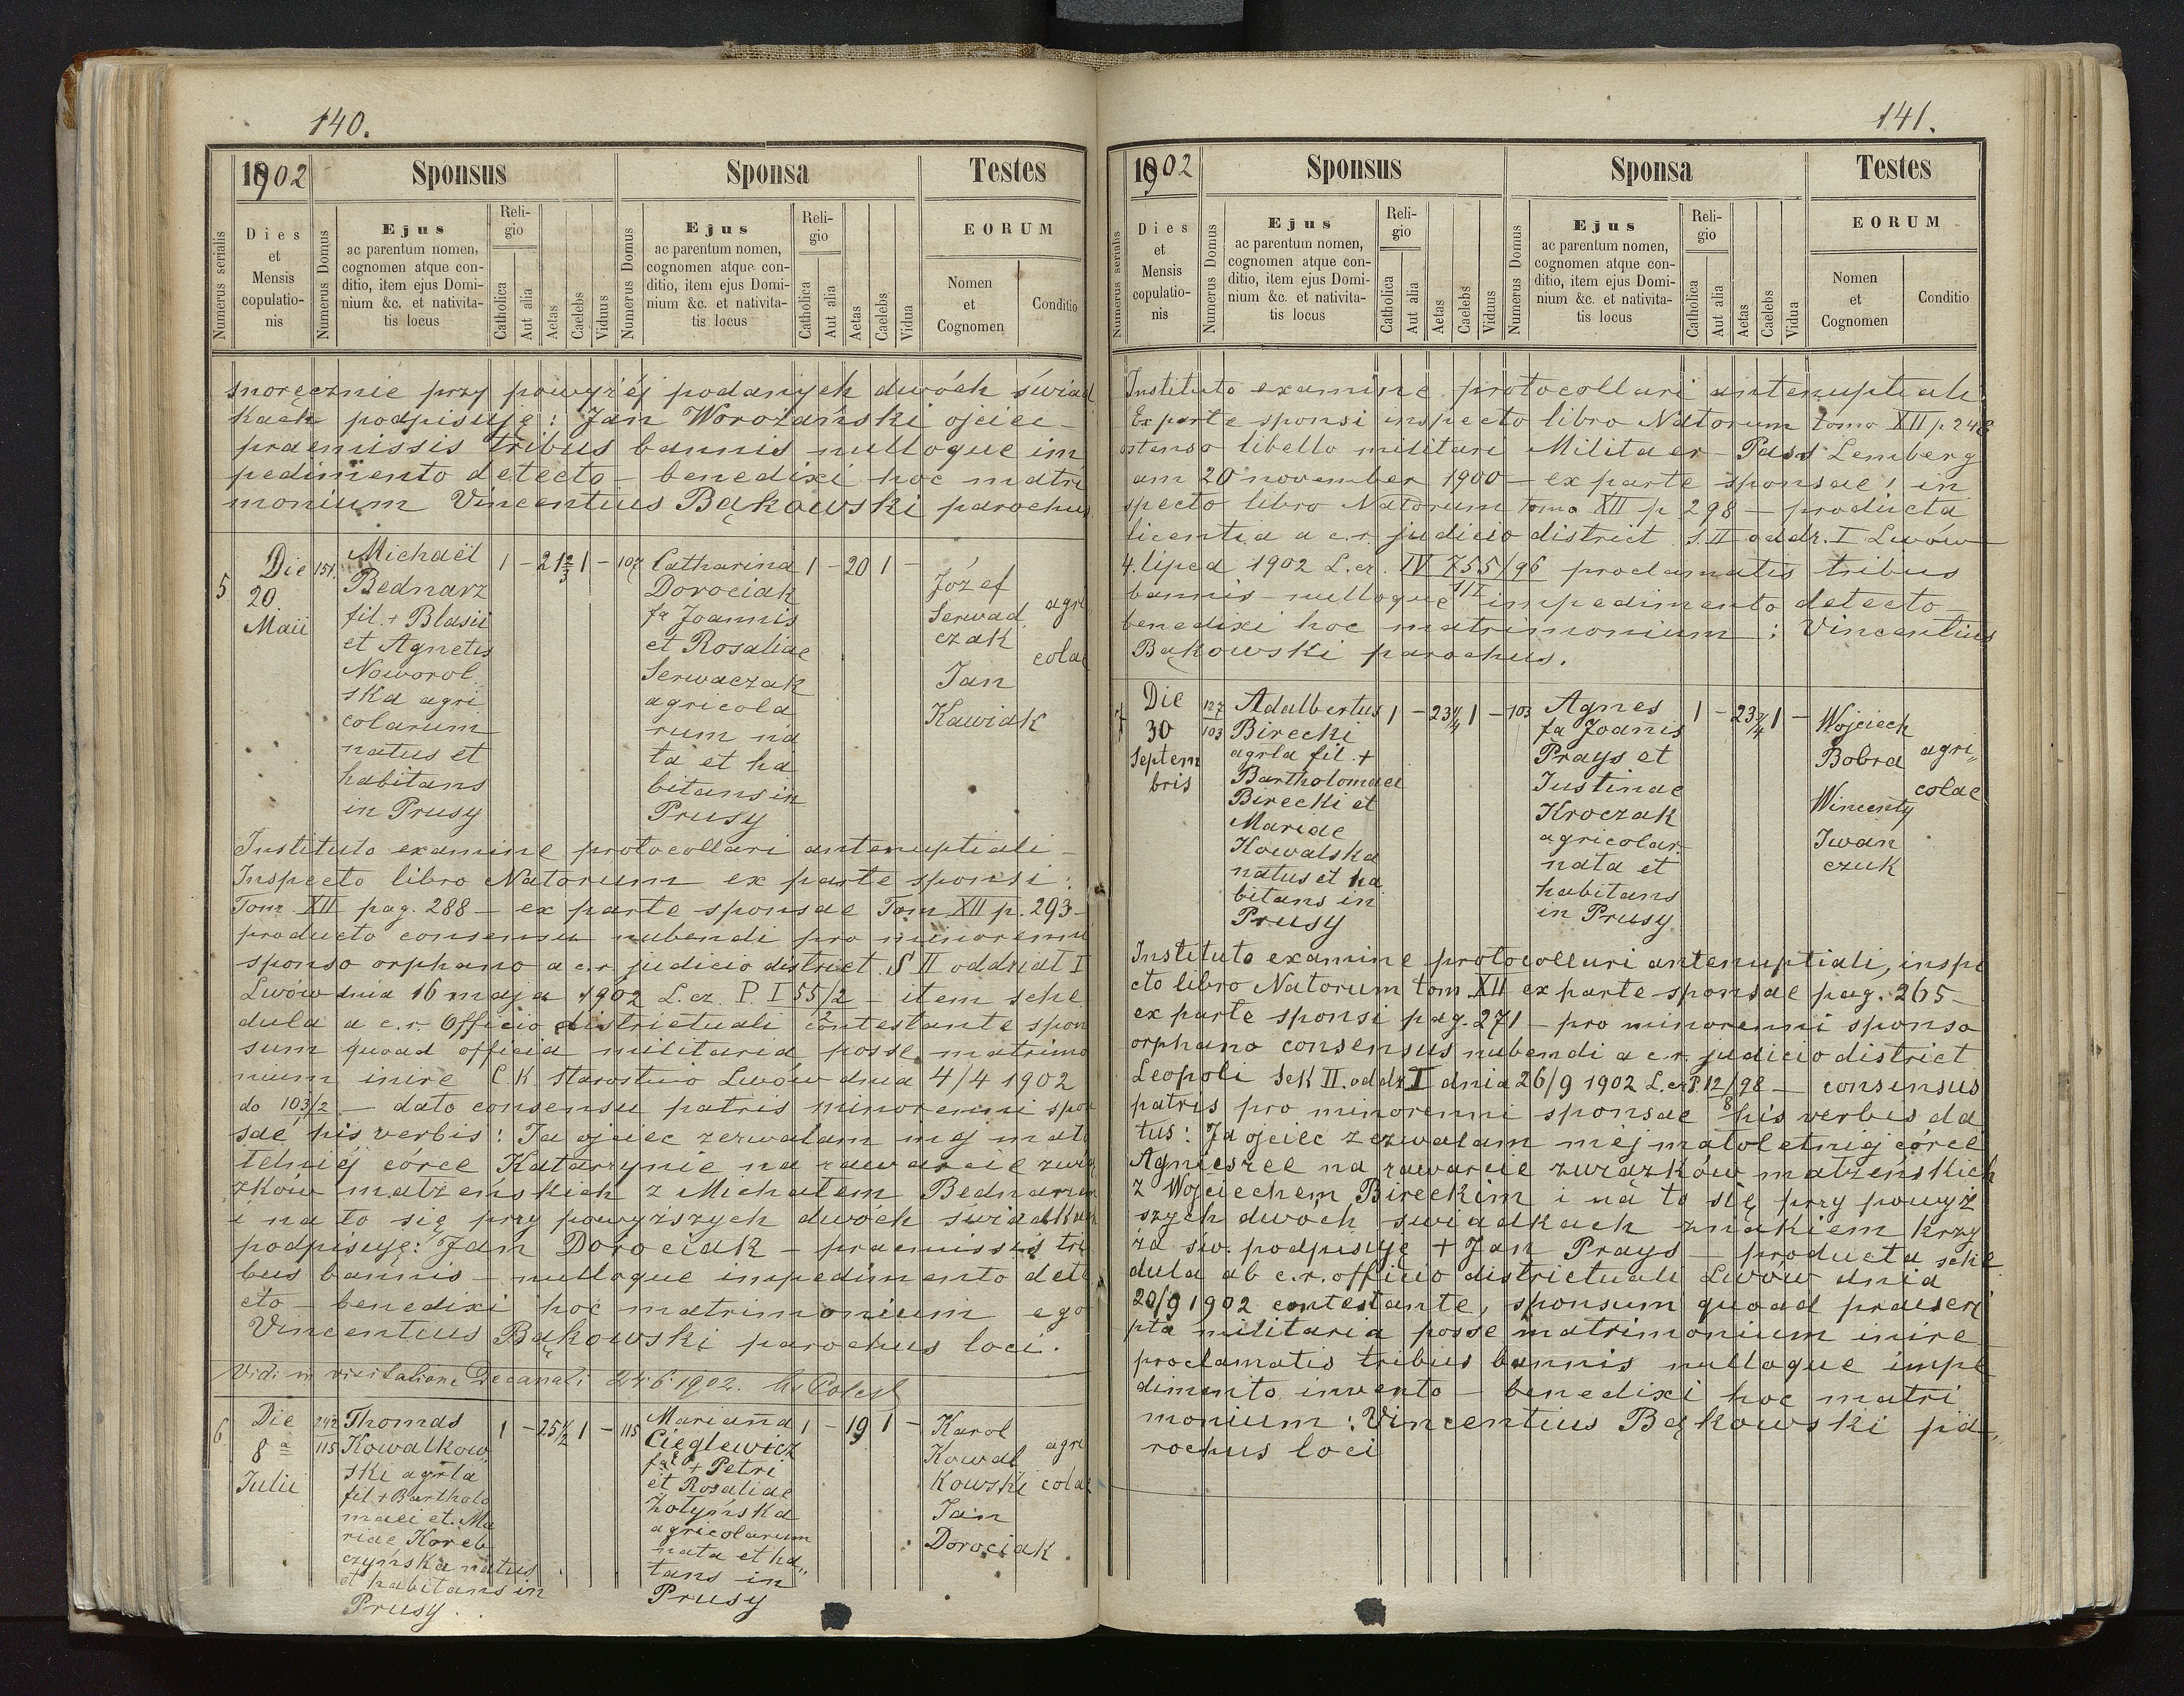 140.
1902
Sponsus
Sponsa
Testes
Numerus serialis
Dies
et
Mensis
copulatio-
nis
Numerus Domus
Ejus
ac parentum nomen,
cognomen atque con-
ditio, item ejus Domi-
nium &c. et nativita-
tis locus
Reli-
gio
Catholica
Aut alia
Aetas
Caelebs
Viduus
Numerus Domus
Ejus
ac parentum nomen,
cognomen atque con-
ditio, item ejus Domi-
nium &c. et nativita-
tis locus
Reli-
gio
Catholica
Aut alia
Aetas
Caelebs
Vidua
EORUM
Nomen
et
Cognomen
Conditio
snoręcznie przy powyżéj podanych dwóch świad
kach podpisuję: Jan Worożański ojciec -
praemissis tribus bannis nulloque im
pedimento detecto - benedixi hoc matri
monium Vincentius Bąkowski parochus.
5
Die
20
Maii
151.
Michaël
Bednarz
fil. + Blasii
et Agnetis
Noworol
ska agri
colarum
natus et
habitans
in Prusy
1 - 21 2/3 1 -
107
Catharina
Dorociak
fa Joannis
et Rosaliae
Serwaczak
agricola
rum na
ta et ha
bitans in
Prusy
1 - 20 1 -
Józef
Serwad
czak
Jan
Kawiak
agri
colae
Instituto examine protocollari antenuptiali -
Inspecto libro Natorum ex parte sponsi:
Tom. XII pag. 288 - ex parte sponsae Tom XII p. 293 -
producto consensu nubendi pro minorenni
sponso orphano a c.r. judicio district. S II oddział I
Lwów dnia 16 maja 1902 L. cz. P. I 55/2 - item sche
2
dula a c.r. Officio districtuali contestante spon
sum quoad officia militaria posse matrimo
nium inire C. K. Starostwo Lwów dnia 4/4 1902
do 103/2 - dato consensu patris minorenni spon
sae his verbis: Ja ojciec zezwalam mej mało
letniéj córce Katarzynie na zawarcie zwią
zków małżeńskich z Michałem Bednarzem
i na to się przy powyższych dwóch świadkach
podpisuję: Jan Dorociak - praemissis tri
bus bannis - nulloque impedimento dete
cto - benedixi hoc matrimonium ego
Vincentius Bąkowski parochus loci.
Vidi in visitatione Decanali 24/6 1902.
6
Die
8a
Julii
242
115
Thomas
Kowalkow
ski agrla
fil + Bartholo
maei et. Ma
riae Koreb
czyńska natus
et habitans in
Prusy.
1 - 25 1/2 1 -
115
Marianna
Cieglewicz
fae + Petri
et Rosaliae
Żołyńska
agricolarum
nata et ha„
tans in
Prusy
1 - 19 1 -
Karol
Kowal
kowski
Jan
Dorociak
agri
colae
141.
1902
Sponsus
Sponsa
Testes
Numerus serialis
Dies
et
Mensis
copulatio-
nis
Numerus Domus
Ejus
ac parentum nomen,
cognomen atque con-
ditio, item ejus Domi-
nium &c. et nativita-
tis locus
Reli-
gio
Catholica
Aut alia
Aetas
Caelebs
Viduus
Numerus Domus
Ejus
ac parentum nomen,
cognomen atque con-
ditio, item ejus Domi-
nium &c. et nativita-
tis locus
Reli-
gio
Catholica
Aut alia
Aetas
Caelebs
Vidua
EORUM
Nomen
et
Cognomen
Conditio
Instituto examine protocollari antenuptiali.
Ex parte sponsi inspecto libro Natorum tomo XII p 246
ostenso libello militari Militaer - Pass Lemberg
am 20 november 1900 - ex parte sponsae: in
specto libro Natorum tomo XII p 298 - producta
licentia a c.r. judicio district. S. II oddz. I Lwów
4. lipca 1902 L. cz. IV 755/96 proclamatis tribus
bannis - nulloque impedimento detecto -
benedixi hoc matrimonium: Vincentius
Bąkowski parochus.
7
Die
30
Septem
bris
127
103
Adalbertus
Birecki
agrla fil. +
Bartholomaei
Birecki et
Mariae
Kowalska
natus et ha
bitans in
Prusy
1 - 23 1/4 1 -
103
Agnes
fa Joannis
Prays et
Justinae
Kroczak
agricolar.
nata et
habitans
in Prusy
1 - 23 3/4 1 -
Wojciech
Bobra
Wincenty
Iwan
czuk
agri„
colae
Instituto examine protocollari antenuptiali, inspe
cto libro Natorum tom XII ex parte sponsae pag. 265 -
ex parte sponsi pag. 271 - pro minorenni sponso
orphano consensus nubendi a c.r. judicio district
Leopoli Sek II. oddz I dnia 26/9 1902 L. cz P. 12/98 - consensus
8
patris pro minorenni sponsae his verbis da
tus: Ja ojciec zezwalam méj małoletniej córce
Agnieszce na zawarcie związków małżeńskich
z Wojciechem Bireckim i na to się przy powyż
szych dwóch świadkach znakiem krzy
ża św. podpisuję + Jan Prays - producta sche
dula ab c.r. officio districtuali Lwów dnia
20/9 1902 contestante, sponsum quoad praescri
pta militaria posse matrimonium inire
proclamatis tribus bannis nulloque impe
dimento invento - benedixi hoc matri
monium: Vincentius Bąkowski pa„
rochus loci